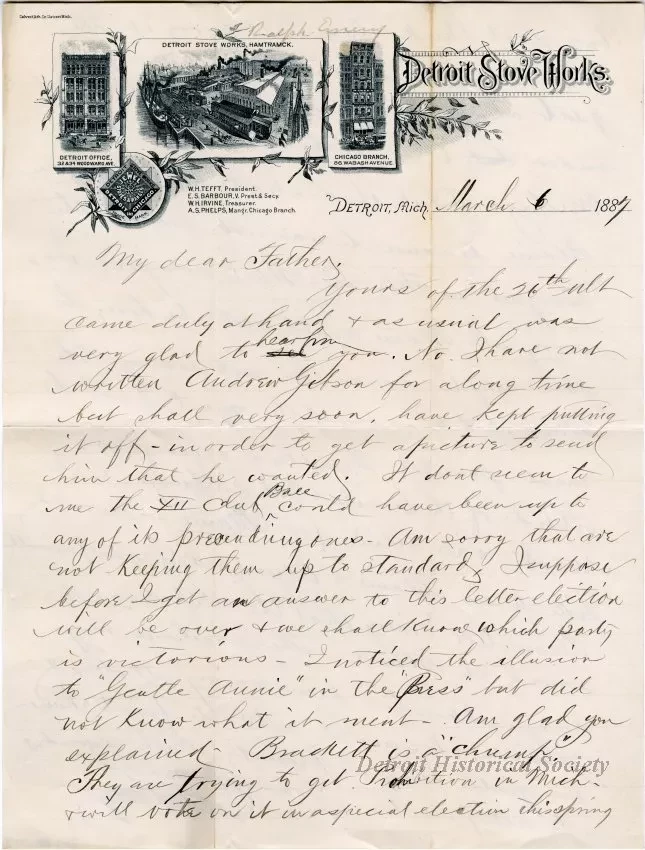 Calvert Lith. Co. Detroit Mich.
Ralph Emery
DETROIT STOVE WORKS, HAMTRAMCK.
Detroit Stove Works.
DETROIT OFFICE,
32 & 34 WOODWARD AVE.
CHICAGO BRANCH,
66 WABASH AVENUE
W.H. TEFFT, President.
E.S. BARBOUR, V. Prest & Secy.
W.H. IRVINE, Treasurer.
A.S. PHELPS, Mangr. Chicago Branch.
Detroit, Mich. March 6 1887
My dear Father,
Yours of the 26th ult
came duly at hand & as usual was
very glad to hear from you. No. I have not
written Andrew Gibson for a long time
but shall very soon, have kept putting
it off - in order to get a picture to send
him that he wanted. It dont seem to
me the XII Club Ball could have been up to
any of its preceeding ones - Am sorry that are
not keeping them up to standard, I suppose
before I get an answer to this letter election
will be over & we shall know which party
is victorious - I noticed the illusion
to "Gentle Annie" in the "Press" but did
not know what it ment - Am glad you
explained - Brackett is a "chump"
They are trying to get Prohibition in Mich -
& will vote on it in a special election this spring
Detroit Historical Society